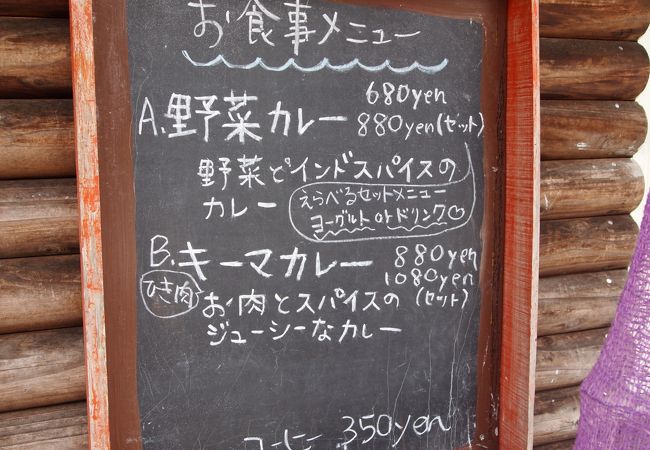 お食事メニュー
A.野菜カレー 680yen
880yen(セット)
野菜とインドスパイスの
カレー
えらべるセットメニュー
ヨーグルト or ドリンク
B.キーマカレー 880yen
1080yen
(セット)
ひき肉
お肉とスパイスの
ジューシーなカレー
コーヒー 350yen